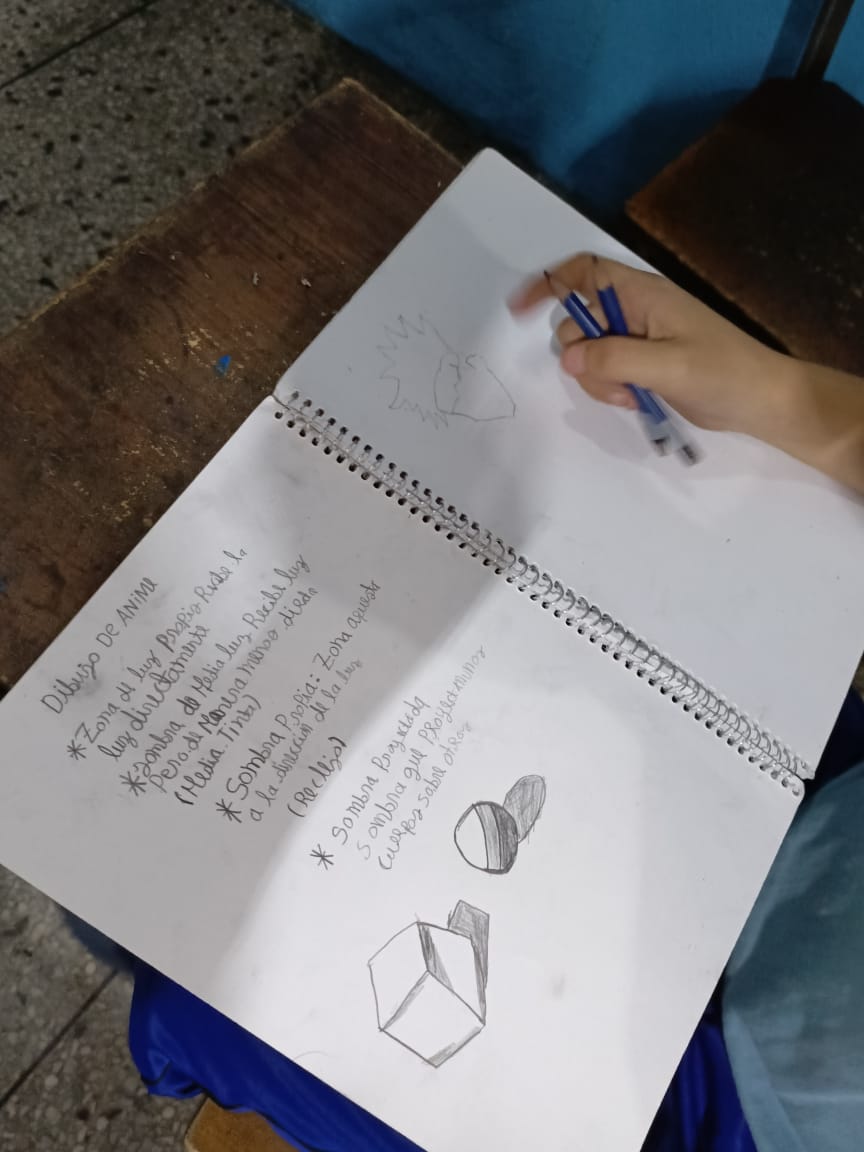 Dibujo De ANiME
* Zona de luz Propia Recibe la
luz directamente
* Sombra de Media luz Recibe luz
Pero de Manera menos directa
(Media Tinta)
* Sombra Propia: Zona opuesta
a la direccion de la luz
(Reclejo)
* Sombra Proyectada
Sombra que Proyecta
Cuerpos sobre otros